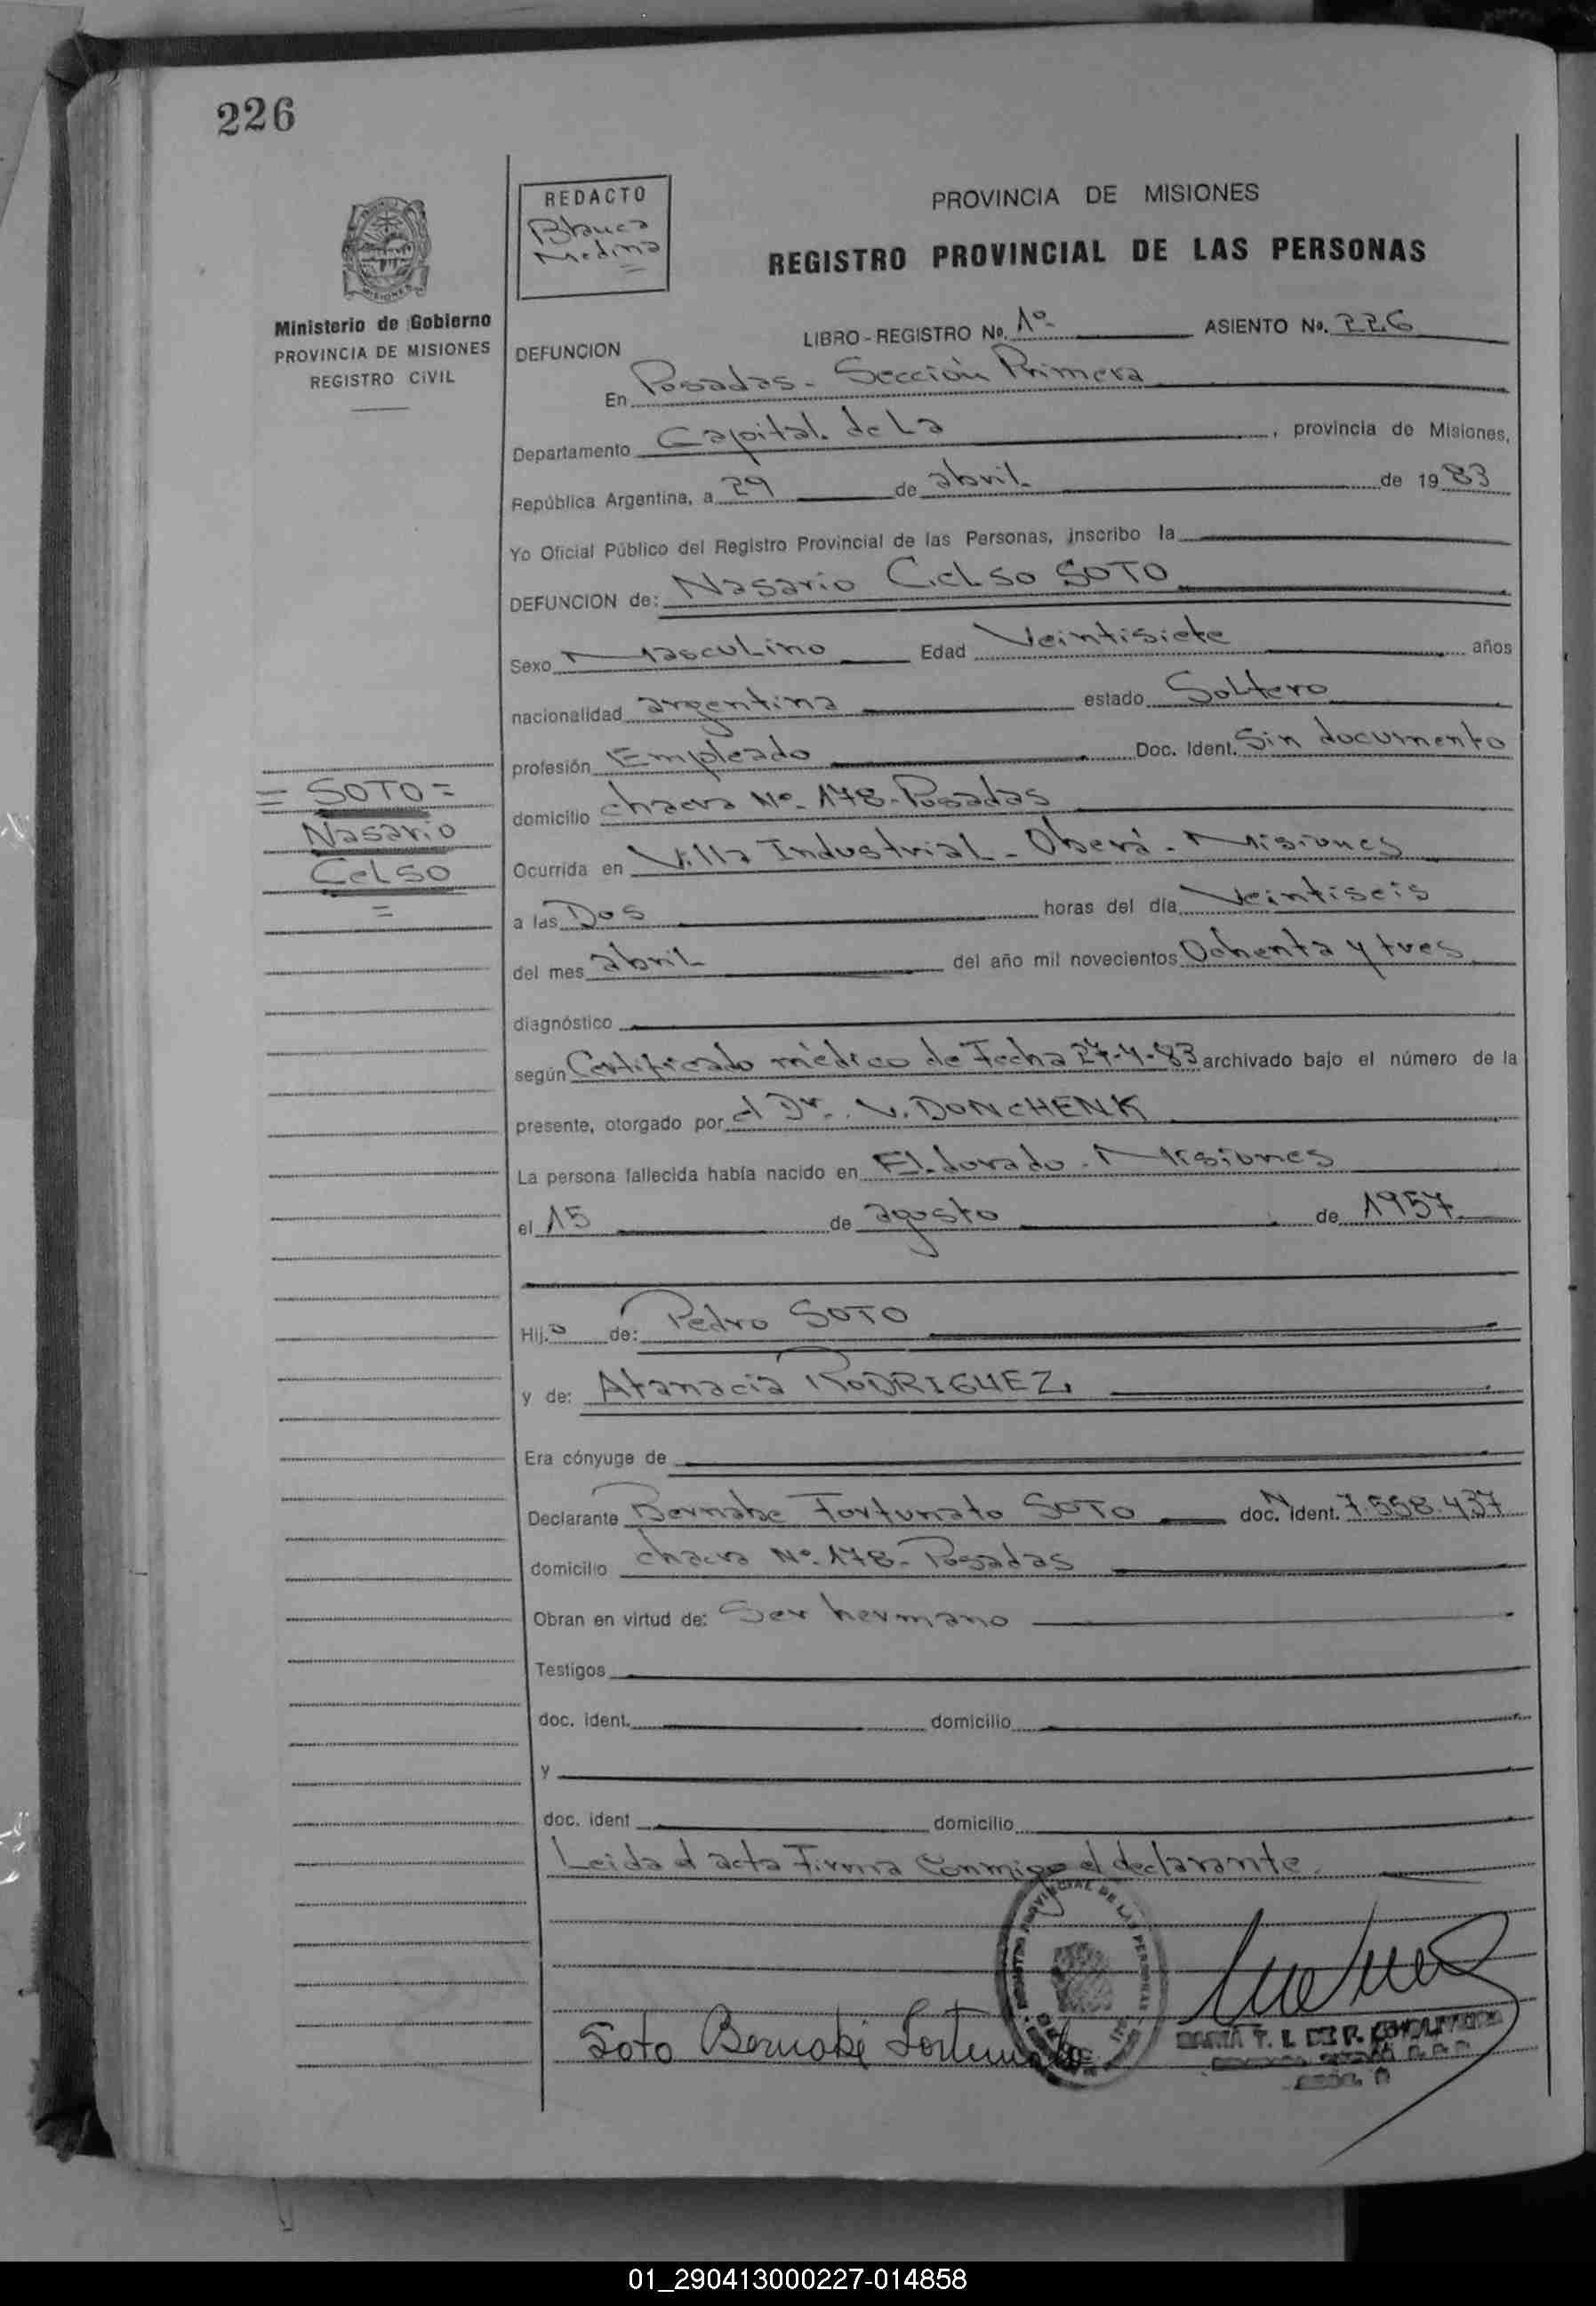 226
REDACTO
Blanca
Medina
PROVINCIA DE MISIONES
REGISTRO PROVINCIAL DE LAS PERSONAS
MISIONES
Ministerio de Gobierno
PROVINCIA DE MISIONES
REGISTRO CIVIL
LIBRO - REGISTRO No. 1º ASIENTO No. 226
DEFUNCION
En Posadas - Sección Primera
Departamento Capital de La, provincia de Misiones,
República Argentina, a 29 de abril de 1983
Yo Oficial Público del Registro Provincial de las Personas, inscribo la
DEFUNCION de: Nasario Celso SOTO
Sexo Masculino Edad Veintisiete años
nacionalidad argentina estado Soltero
profesión Empleado Doc. Ident. Sin documento
= SOTO =
Nasario
Celso
=
domicilio chacra Nº 178 - Posadas
Ocurrida en Villa Industrial - Oberá - Misiones
a las Dos horas del día Veintiseis
del mes abril del año mil novecientos Ochenta y tres
diagnóstico
según Certificado médico de Fecha 27-4-83 archivado bajo el número de la
presente, otorgado por el Dr. V. DONCHENK
La persona fallecida había nacido en Eldorado - Misiones
el 15 de agosto de 1957
Hijo de: Pedro SOTO
y de: Atanacia RODRIGUEZ
Era cónyuge de
Declarante Bernabe Fortunato SOTO doc. N ident. 7.558.437
domicilio chacra Nº 178 - Posadas
Obran en virtud de: Ser hermano
Testigos
doc. ident. domicilio
y
doc. ident domicilio
Leida el acta Firma Conmigo el declarante.
Soto Bernabé Fortunato
01_290413000227-014858